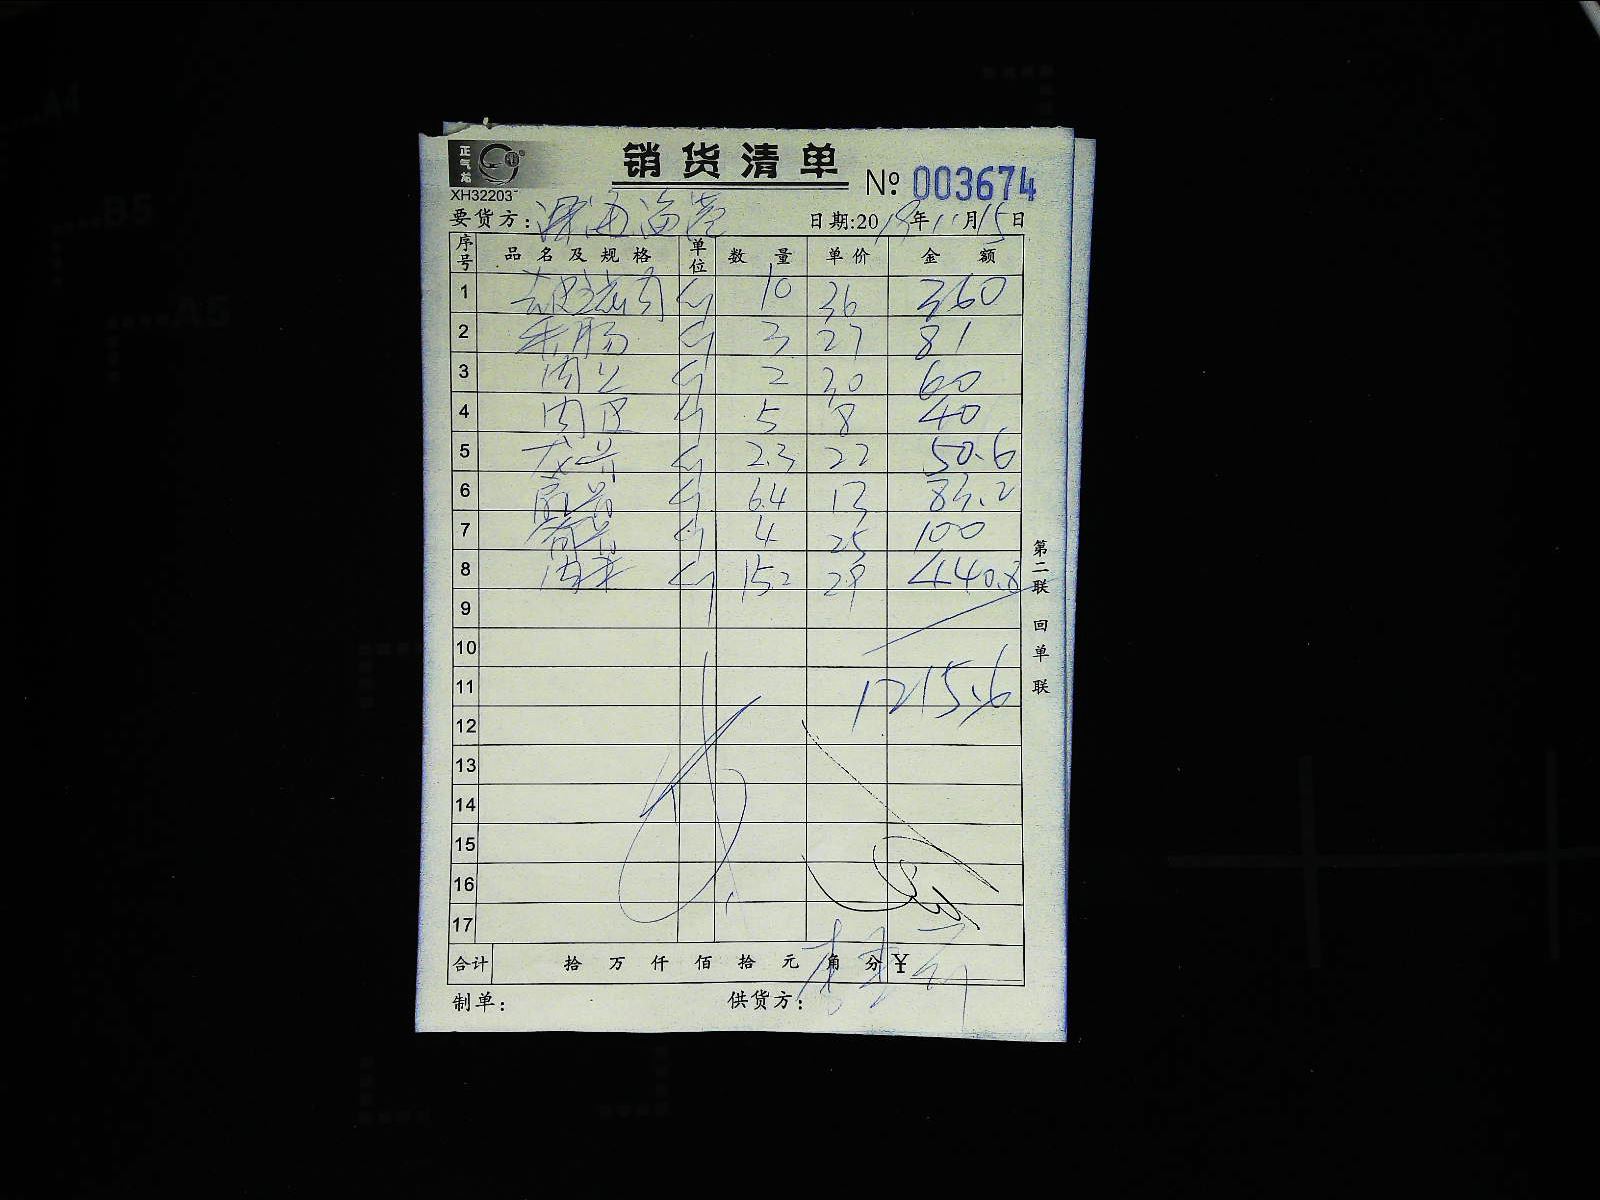 正气龙
销货清单
XH32203
№ 003674
要货方: 日期:2019年11月15日
序号 品名及规格 单位 数量 单价 金额
1 斤 10 36 360
2 斤 3 27 81
3 斤 2 30 60
4 肉皮 斤 5 8 40
5 龙骨 斤 2.3 22 50.6
6 斤 6.4 13 83.2
7 斤 4 25 100
8 斤 15.2 29 440.8
9
10
11 1215.6
12
13
14
15
16
17
合计 拾万仟佰拾元角分 ¥
制单: 供货方:
第二联 回单联